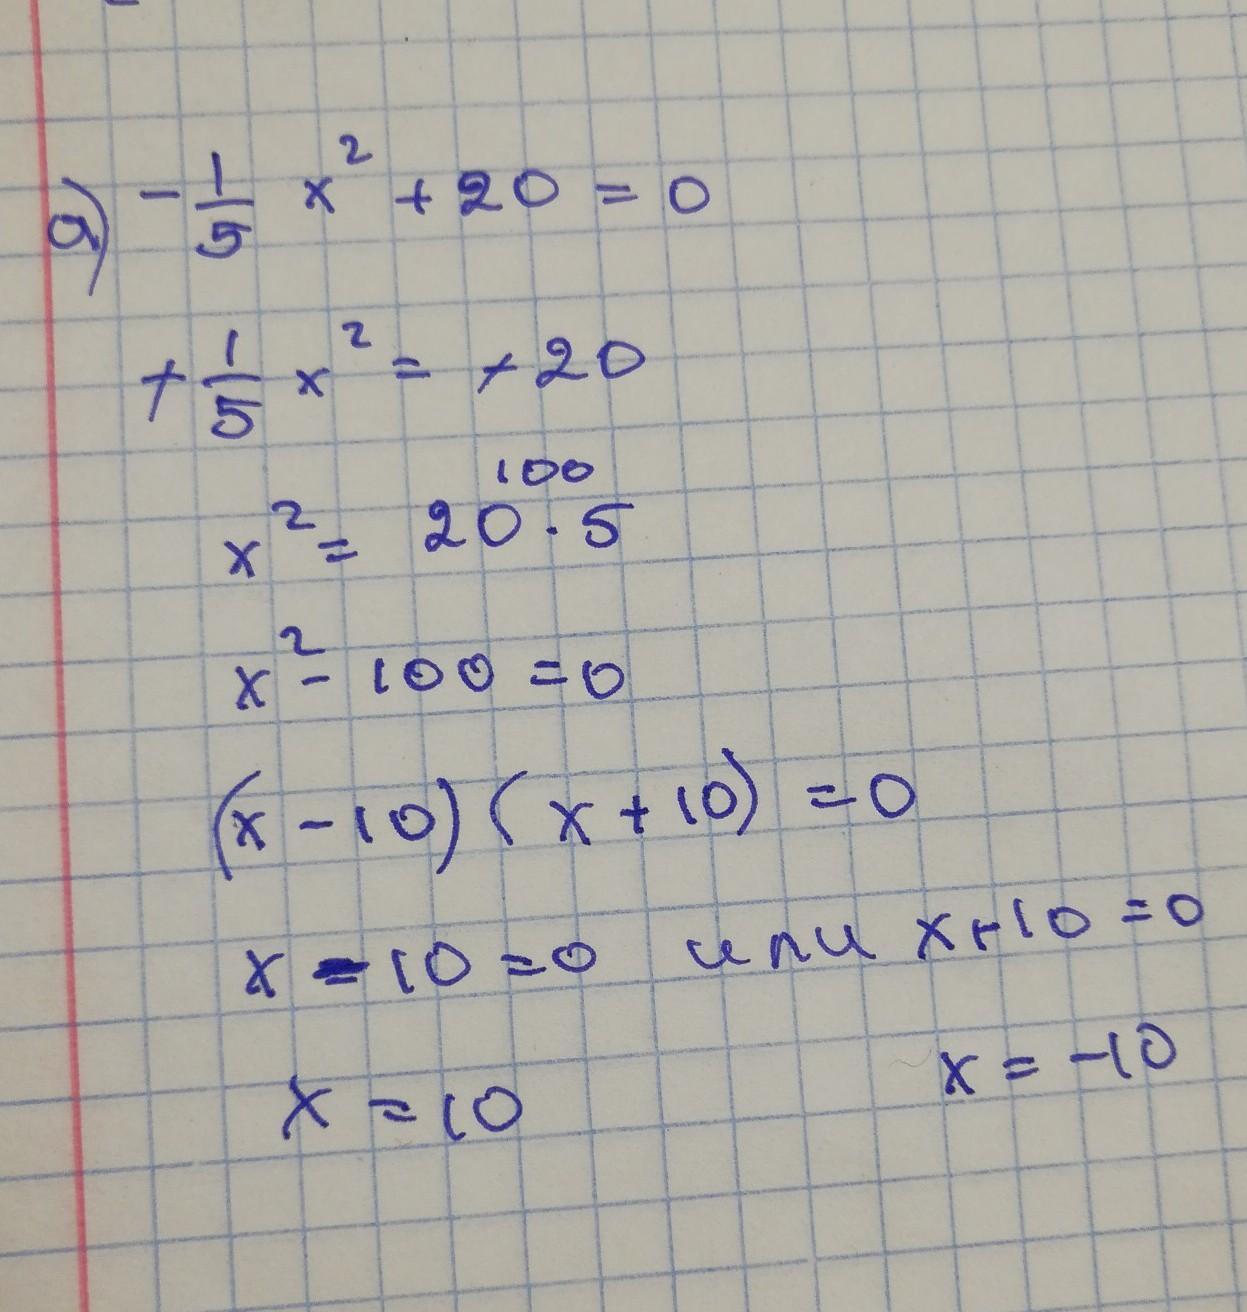 а) -1/5 x² + 20 = 0
+ 1/5 x² = + 20
100
x² = 20 · 5
x² - 100 = 0
(x - 10) (x + 10) = 0
x - 10 = 0 или x + 10 = 0
x = 10 x = -10